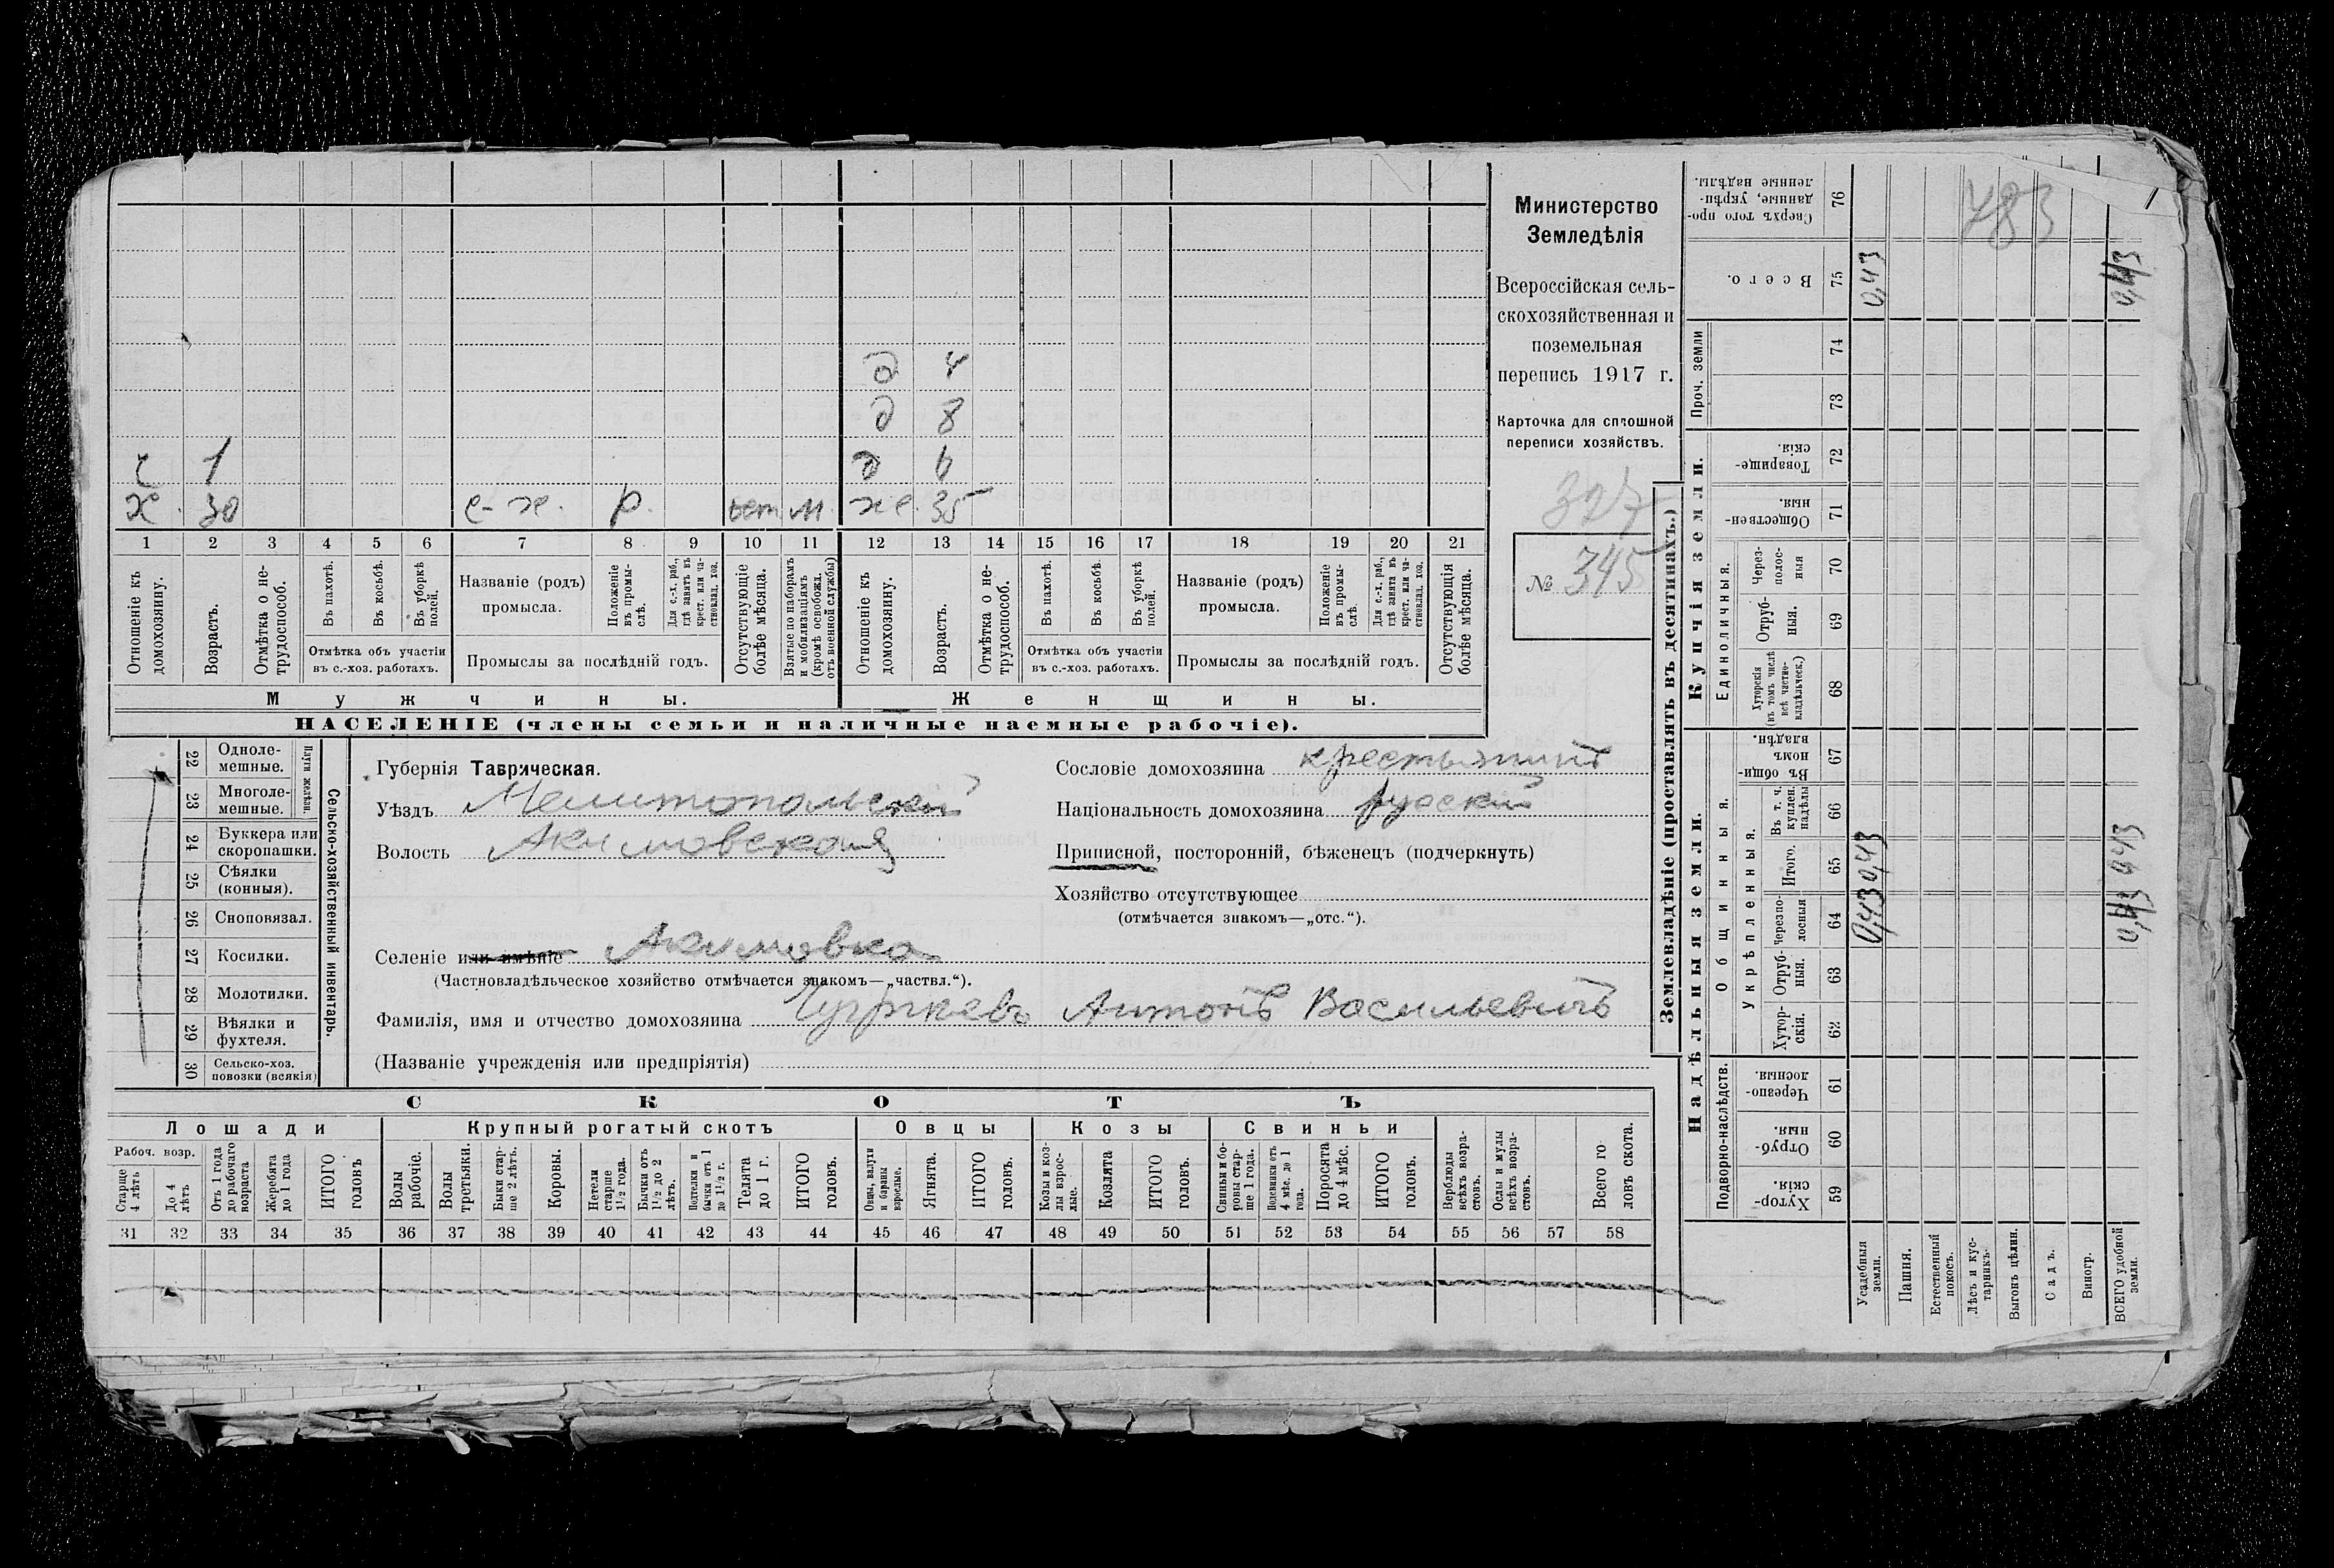 д 4
д 8
с 1 д 6
х. 30 с-х. р. жен. 35
1 2 3 4 5 6 7 8 9 10 11 12 13 14 15 16 17 18 19 20 21
Отношеніе къ домохозяину.
Возрастъ.
Отмѣтка о не-трудоспособ.
Въ пахотѣ.
Въ косьбѣ.
Въ уборкѣ полей.
Отмѣтка объ участіи
въ с.-хоз. работахъ.
Названіе (родъ)
промысла.
Положеніе въ промы-слѣ.
Для с.-х. раб., гдѣ занятъ въ крест. или ча-стновлад. хоз.
Промыслы за послѣдній годъ.
Отсутствующіе болѣе мѣсяца.
Взятые по наборамъ и мобилизаціямъ (кромѣ освобожд. отъ военной службы)
Отношеніе къ домохозяину.
Возрастъ.
Отмѣтка о не-трудоспособ.
Въ пахотѣ.
Въ косьбѣ.
Въ уборкѣ полей.
Отмѣтка объ участіи
въ с.-хоз. работахъ.
Названіе (родъ)
промысла.
Положеніе въ промы-слѣ.
Для с.-х. раб., гдѣ занята въ крест. или ча-стновлад. хоз.
Промыслы за послѣдній годъ.
Отсутствующія болѣе мѣсяца.
Мужчины. Женщины.
НАСЕЛЕНІЕ (члены семьи и наличные наемные рабочіе).
Министерство
Земледѣлія
Всероссійская сель-
скохозяйственная и
поземельная
перепись 1917 г.
Карточка для сплошной
переписи хозяйствъ.
327
№ 345
22 Одноле-мешные.
23 Многоле-мешные.
Плуги желѣзн.
24 Буккера или скоропашки.
25 Сѣялки (конныя).
26 Сноповязал.
27 Косилки.
28 Молотилки.
29 Вѣялки и фухтеля.
30 Сельско-хоз. повозки (всякія)
Сельско-хозяйственный инвентарь.
Губернія Таврическая.
Уѣздъ Мелитопольский
Волость Акимовская
Селеніе или имѣніе Акимовка
(Частновладѣльческое хозяйство отмѣчается знакомъ—„частвл.“).
Фамилія, имя и отчество домохозяина Антонъ Васильевичъ
(Названіе учрежденія или предпріятія)
Сословіе домохозяина крестьянинъ
Національность домохозяина русский
Приписной, посторонній, бѣженецъ (подчеркнуть)
Хозяйство отсутствующее
(отмѣчается знакомъ—„отс.“).
СКОТЪ
Лошади Крупный рогатый скотъ Овцы Козы Свиньи
Рабоч. возр.
Старще 4 лѣтъ
До 4 лѣтъ
Отъ 1 года до рабочаго возраста
Жеребята до 1 года
ИТОГО головъ
Волы рабочіе.
Волы третьяки.
Быки стар-ше 2 лѣтъ.
Коровы.
Нетели старше 1½ года.
Бычки отъ 1½ до 2 лѣтъ.
Подтелки и бычки отъ 1 до 1½ г.
Телята до 1 г.
ИТОГО головъ.
Овцы, валухи и бараны взрослые.
Ягнята.
ИТОГО головъ.
Козы и коз-лы взрос-лые.
Козлята
ИТОГО головъ.
Свиньи и бо-ровы стар-ше 1 года.
Подсвинки отъ 4 мѣс. до 1 года.
Поросята до 4 мѣс.
ИТОГО головъ.
Верблюды всѣхъ возра-стовъ.
Ослы и мулы всѣхъ возра-стовъ.
Всего го ловъ скота.
31 32 33 34 35 36 37 38 39 40 41 42 43 44 45 46 47 48 49 50 51 52 53 54 55 56 57 58
Землевладѣніе (проставлять въ десятинахъ.)
Сверхъ того про-данные, укрѣп-ленные надѣлы. 76
783
Всего. 75 0,43 0,43
Проч. земли 74
73
Купчія земли.
Товарище-скія. 72
Обществен-ныя. 71
Единоличныя.
Через-полос-ныя 70
Отруб-ныя. 69
Хуторскія (въ томъ числѣ всѣ частно-владѣльческ.) 68
Надѣльныя земли.
Общинныя.
Въ общи-номъ владѣн. 67
Укрѣпленныя.
Въ т. ч. куплен. надѣлы 66
Итого. 65 0,43 0,43
Черезпо-лосныя 64 0,43 0,43
Отруб-ныя. 63
Хутор-скія. 62
Подворно-наслѣдств.
Черезпо-лосныя. 61
Отруб-ныя. 60
Хутор-скія. 59
Усадебныя земли.
Пашня.
Естественный покосъ.
Лѣсъ и кус-тарникъ.
Выгонъ цѣлин.
Садъ.
Виногр.
ВСЕГО удобной земли.